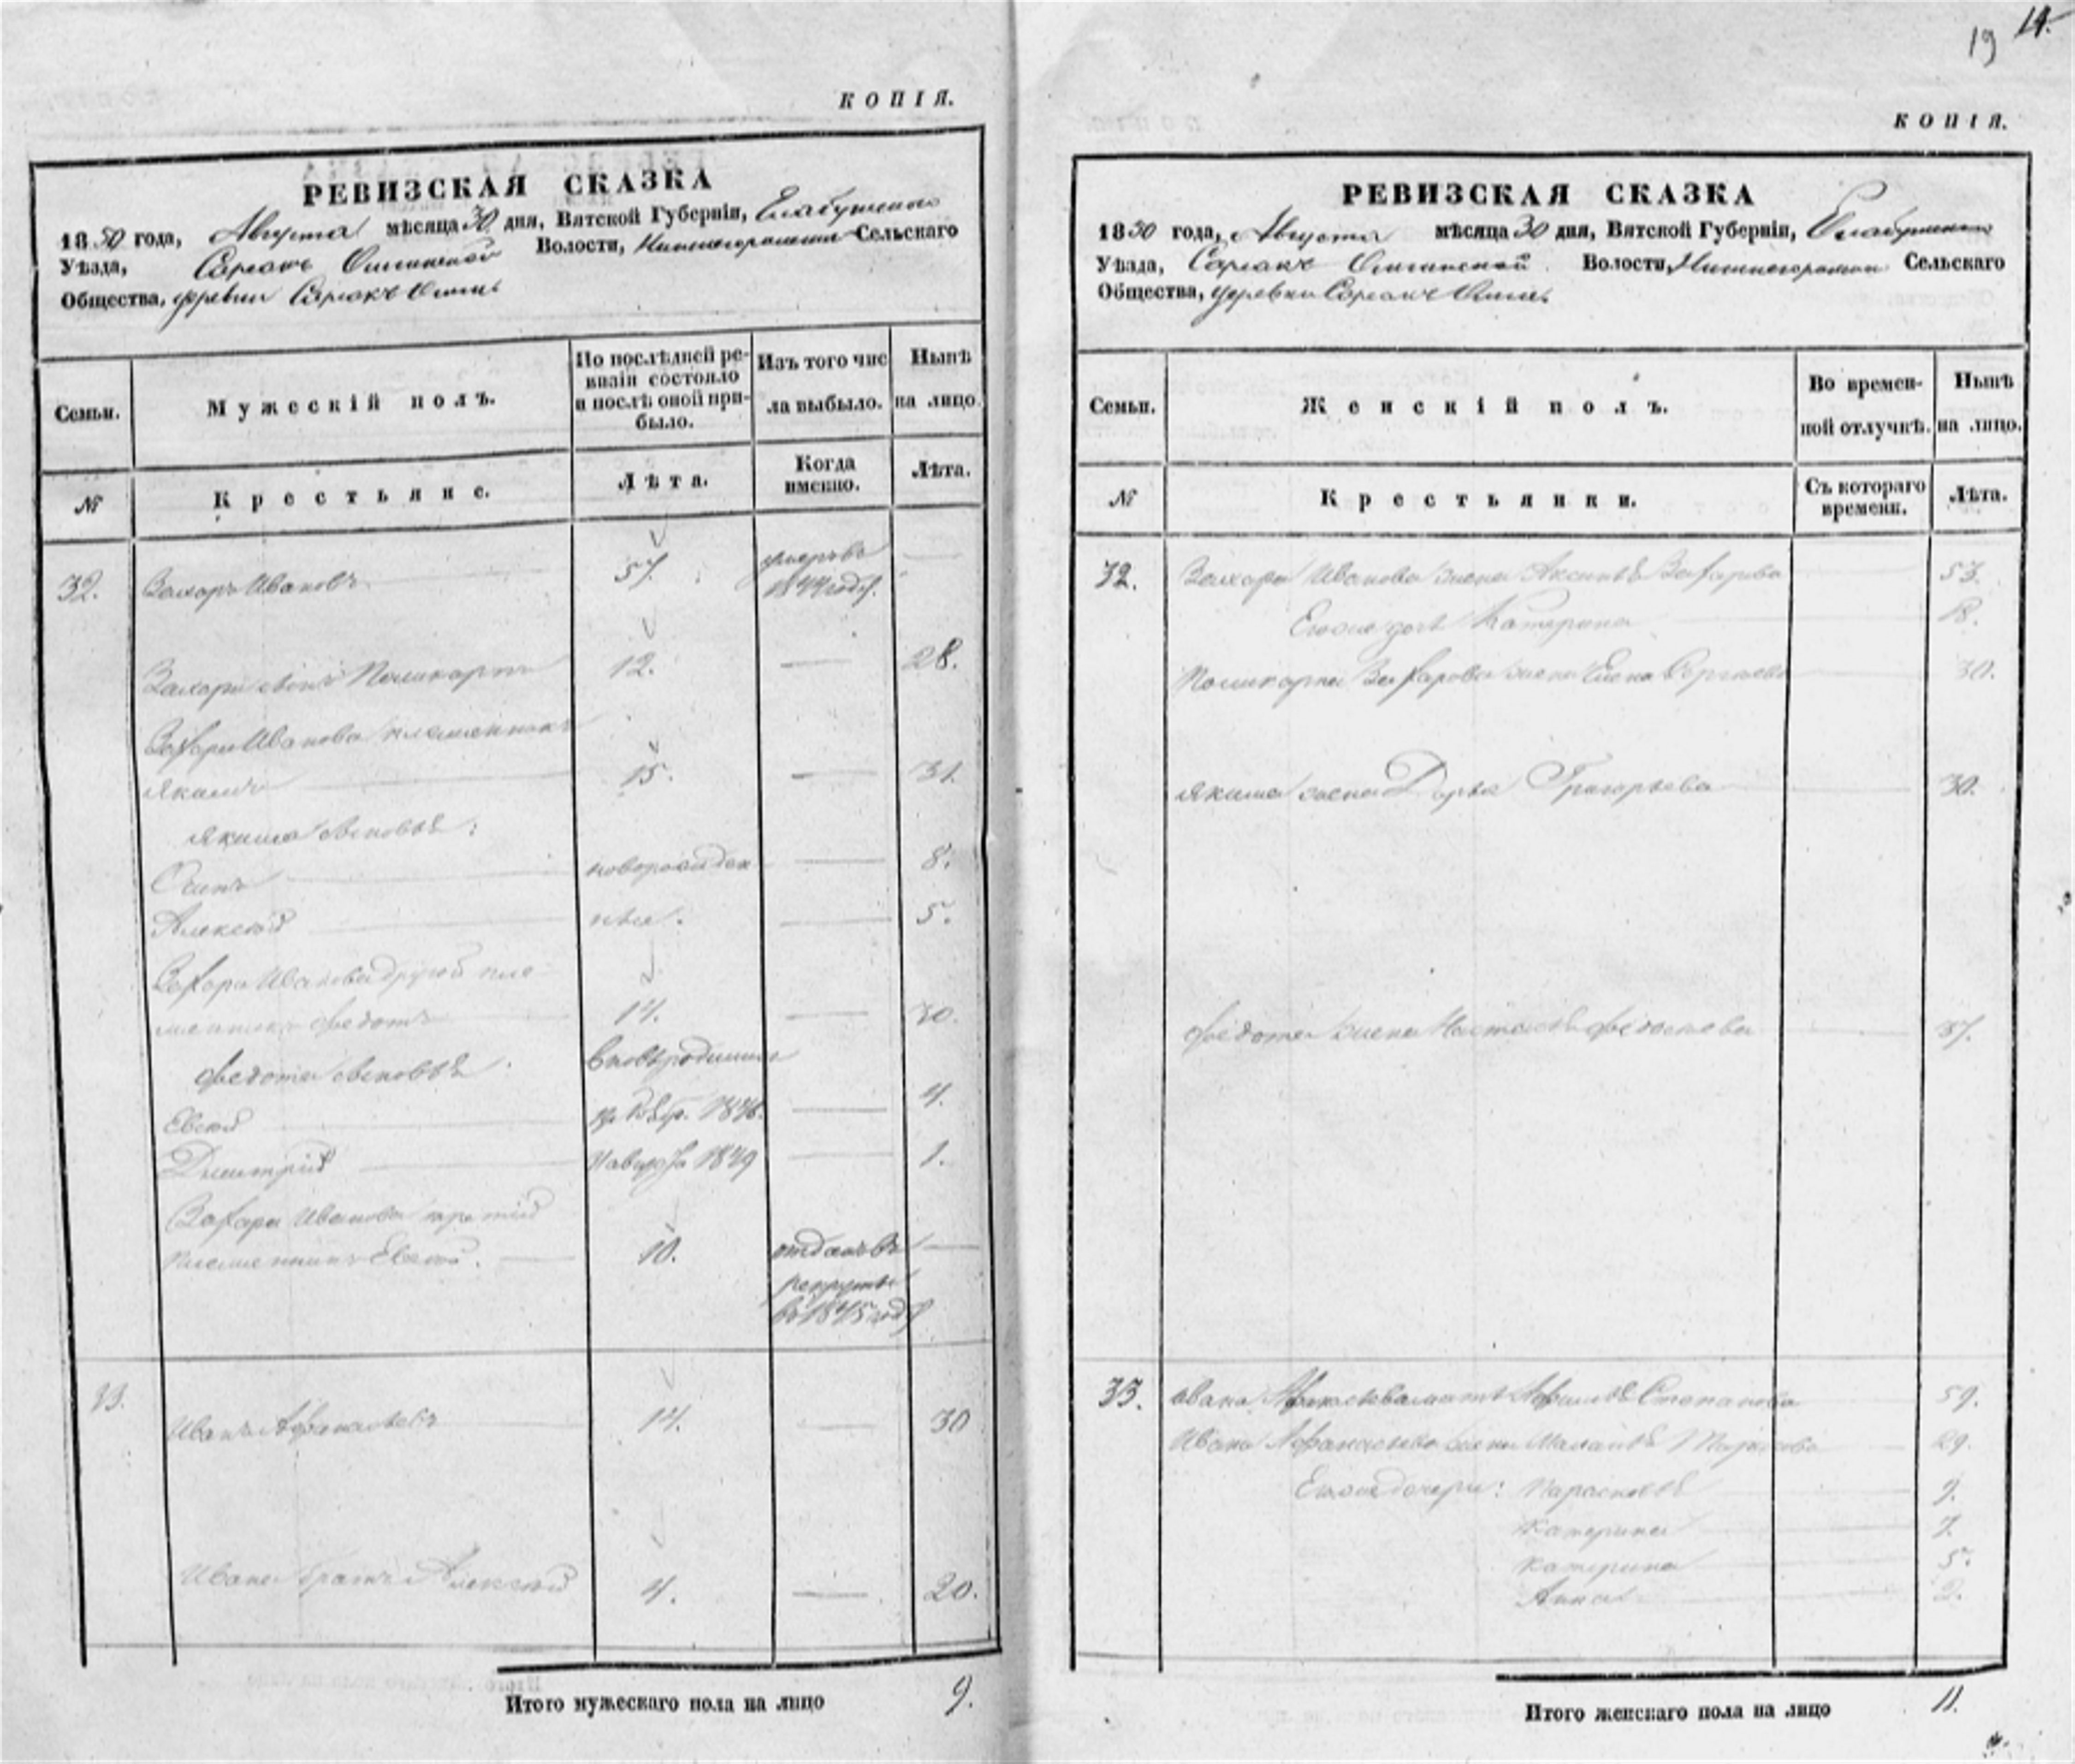 КОПІЯ.
РЕВИЗСКАЯ СКАЗКА
1850 года, Августа мѣсяца 30 дня, Вятской Губерніи, Елабужскаго
Уѣзда, Сарсакъ Омгинской Волости, Сельскаго
Общества, деревни Сарсакъ Омги
Семьи.
Мужескій полъ.
По послѣдней ре-
визіи состояло
и послѣ оной при-
было.
Изъ того чис
ла выбыло.
Нынѣ
на лицо.
№
Крестьяне.
Лѣта.
Когда
именно.
Лѣта.
32. Захаръ Ивановъ 57. умеръ въ
1844 году.
Захара сынъ Поликарпъ 12. 28.
Захара Иванова племянникъ
Якимъ 15. 31.
Якима сыновья:
Осипъ новорожден 8.
Алексѣй ные. 5.
Захара Иванова другой пле
мянникъ Федотъ 14. 30.
Федота сыновья вновьродившіе
Евсей 1846. 4.
Дмитрій 1849 1.
Захара Иванова третій
племянникъ Евсей. 10. отданъ въ
рекруты
въ 1845 году
33. Иванъ Афанасьевъ 14. 30
Ивана братъ Алексѣй 4. 20.
Итого мужескаго пола на лицо 9.
19 14.
КОПІЯ.
РЕВИЗСКАЯ СКАЗКА
1850 года, Августа мѣсяца 30 дня, Вятской Губерніи, Елабужскаго
Уѣзда, Сарсакъ Омгинской Волости, Сельскаго
Общества, деревни Сарсакъ Омги.
Семьи.
Женскій полъ.
Во времен-
ной отлучкѣ.
Нынѣ
на лицо.
№
Крестьянки.
Съ котораго
времени.
Лѣта.
32. Захара Иванова жена Аксинья Захарова 53.
Егоже дочь Катерина 18.
Поликарпа Захарова жена Елена Сергѣева 30.
Якима жена Дарья Григорьева 30.
Федота жена Настасья 37.
33. Ивана Афанасьева мать Афимья Степанова 59.
Ивана Афанасьева жена Маланья Тарасова 29.
Егоже дочери: Парасковья 9.
Катерина 7.
Катерина 5.
Анна 2.
Итого женскаго пола на лицо 11.